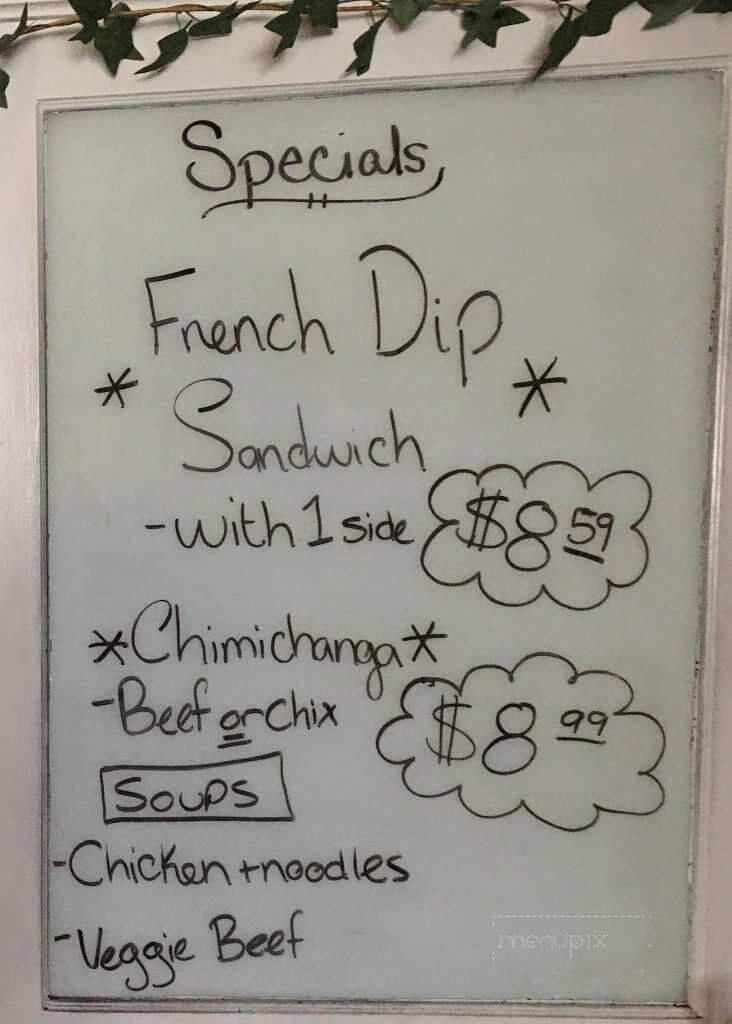 Specials
French Dip
* Sandwich *
- with 1 side $8 59
*Chimichanga*
- Beef or chix $8 99
SOUPS
- Chicken + noodles
- Veggie Beef
menupix